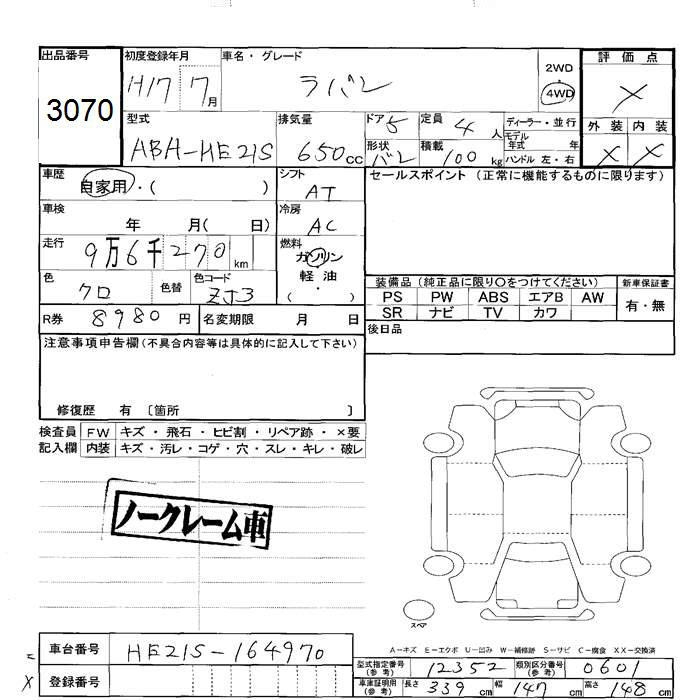 出品番号 初度登録年月 車名・グレード 評価点
3070 H17 7月 ラパン 2WD 4WD X
型式 排気量 ドア 5 定員 4人 ディーラー・並行 外装 内装
ABA-HE21S 650cc 形状 バン 積載 100kg モデル年式 年 ハンドル 左・右 X X
車歴 自家用・( ) シフト AT セールスポイント (正常に機能するものに限ります)
車検 年 月( 日) 冷房 AC
走行 9万6千270km 燃料 ガソリン 軽油 ( ・ )
装備品(純正品に限り〇をつけてください) 新車保証書
色 クロ 色替 色コード ZJ3 PS PW ABS エアB AW 有・無
SR ナビ TV カワ
R券 8980円 名変期限 月 日 後日品
注意事項申告欄(不具合内容等は具体的に記入して下さい)
修復歴 有 〔箇所 〕
検査員 FW キズ・飛石・ヒビ割・リペア跡・×要
記入欄 内装 キズ・汚レ・コゲ・穴・スレ・キレ・破レ
ノークレーム車
スペア
A−キズ E−エクボ U−凹み W−補修跡 S−サビ C−腐食 XX−交換済
車台番号 HE21S-164970 型式指定番号(参考) 12352 類別区分番号(参考) 0601
登録番号 車庫証明用(参考) 長さ 339cm 幅 147cm 高さ 148cm